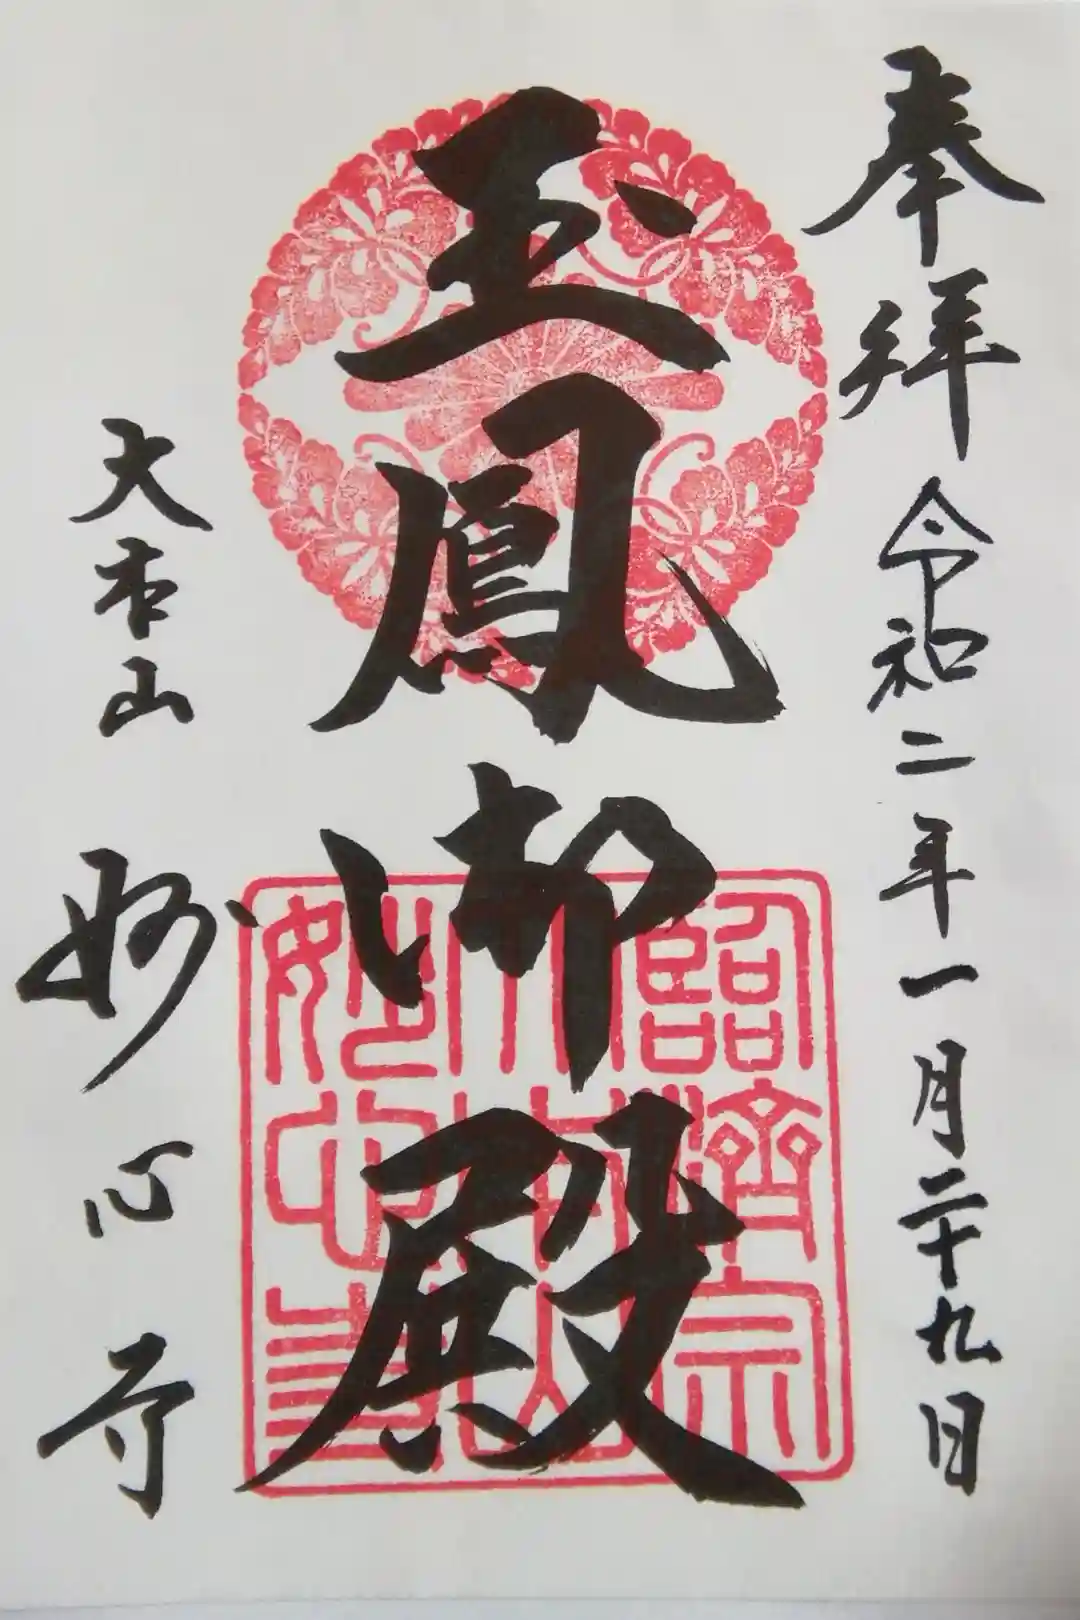 奉拝 令和二年一月二十九日
玉鳳御殿
臨済宗
大本山
妙心寺
大本山 妙心寺